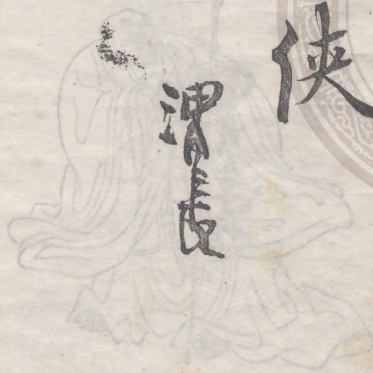 侠
渭長